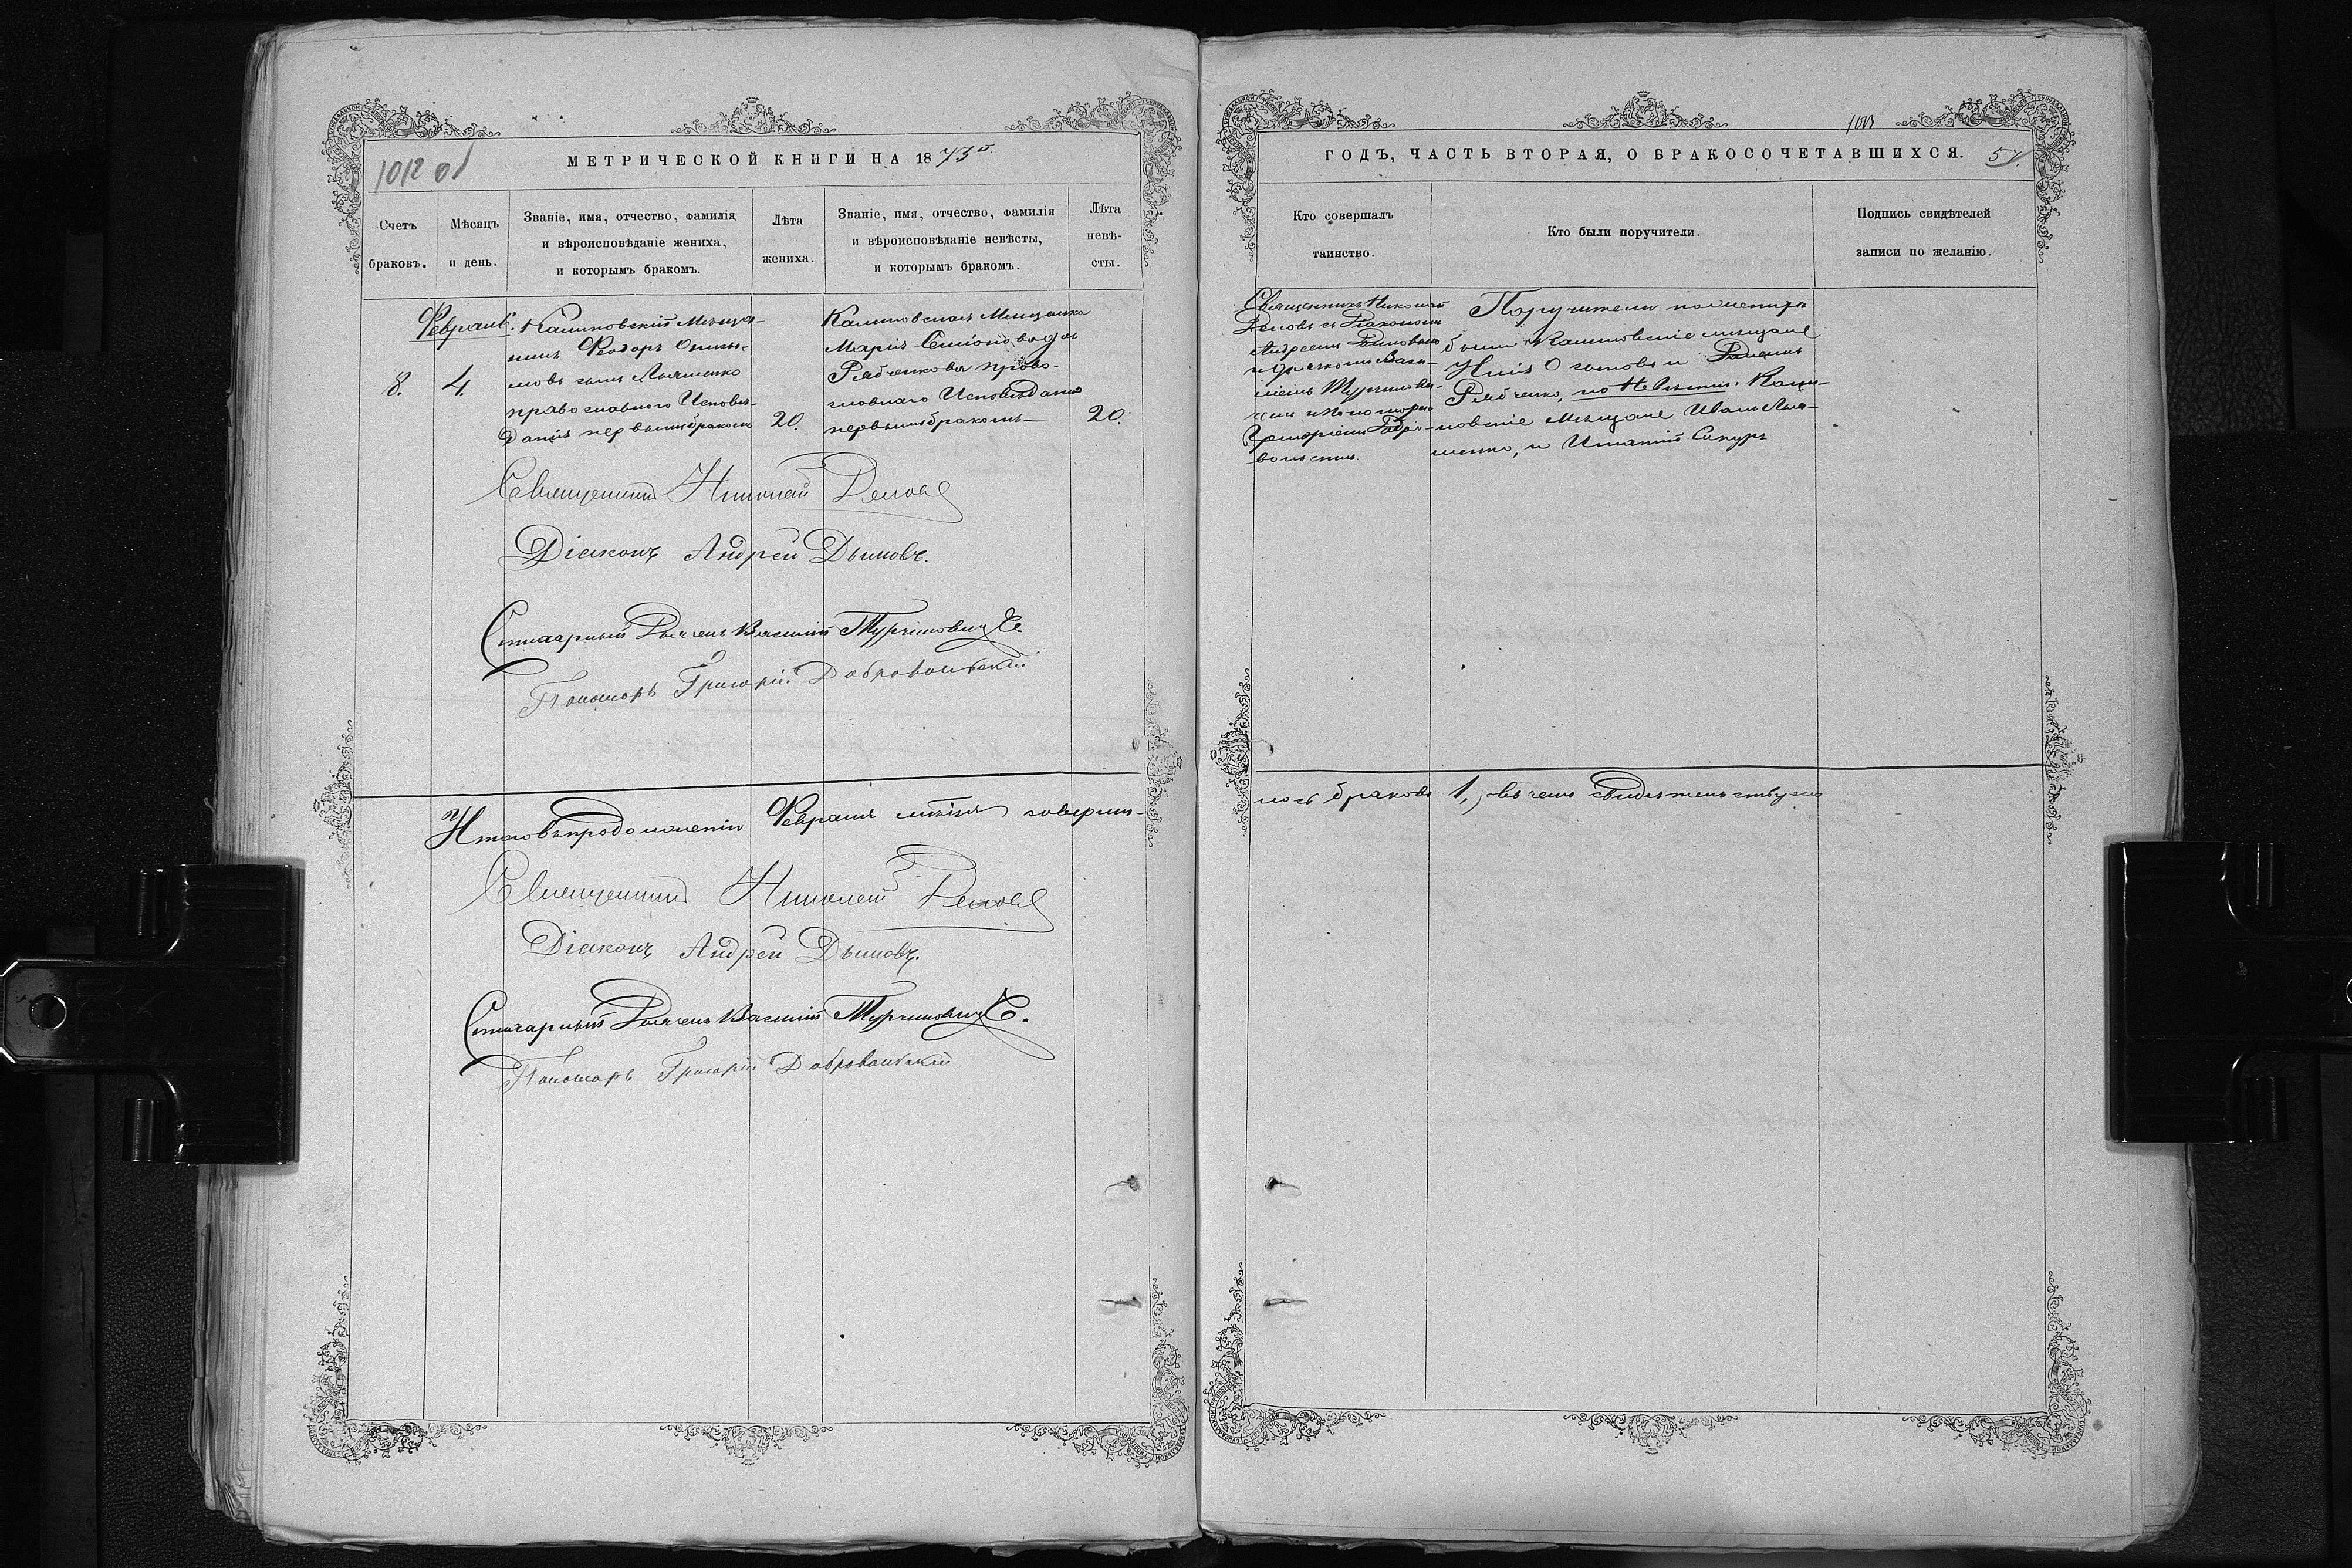 1012 об
МЕТРИЧЕСКОЙ КНИГИ НА 1873й
Счетъ браковъ.
Мѣсяцъ и день.
Званіе, имя, отчество, фамилія
и вѣроисповѣданіе жениха,
и которымъ бракомъ.
Лѣта жениха.
Званіе, имя, отчество, фамилія
и вѣроисповѣданіе невѣсты,
и которымъ бракомъ.
Лѣта невѣ-
сты.
Февраль.
8.
4.
Калиновскій Мѣща-
нинъ Феодоръ
сынъ Ляшенко
православного Исповѣ-
данія первымъ бракомъ
20.
Калиновская Мѣщанка
Марія
Рябченкова право-
славнаго Исповѣданія
первымъ бракомъ
20.
Священникъ Николай
Діаконъ Андрей Дымовъ.
Стихарный Дьячекъ Василій Турчиновичъ
Пономарь Григорій Добровольскій
Итого въ продолженіи Февраля мѣсяца соверши-
Священникъ Николай
Діаконъ Андрей Дымовъ.
Стихарный Дьячекъ Василій Турчиновичъ
Пономарь Григорій Добровольскій
1013
ГОДЪ, ЧАСТЬ ВТОРАЯ, О БРАКОСОЧЕТАВШИХСЯ.
57
Кто совершалъ
таинство.
Кто были поручители.
Подпись свидѣтелей
записи по желанію.
Священникъ Николай
съ Діакономъ
Андреемъ Дымовымъ
и Дьячкомъ Васи-
ліемъ Турчинови-
чемъ и Пономаремъ
Григоріемъ Добро-
вольскимъ.
Поручители по женихѣ
были Калиновскіе мѣщане
и
Рябченко, по Невѣстѣ. Кали-
новскіе Мѣщане Иванъ Ля-
шенко, и Игнатій
лось браковъ 1, въ чемъ свидѣтельствуемъ